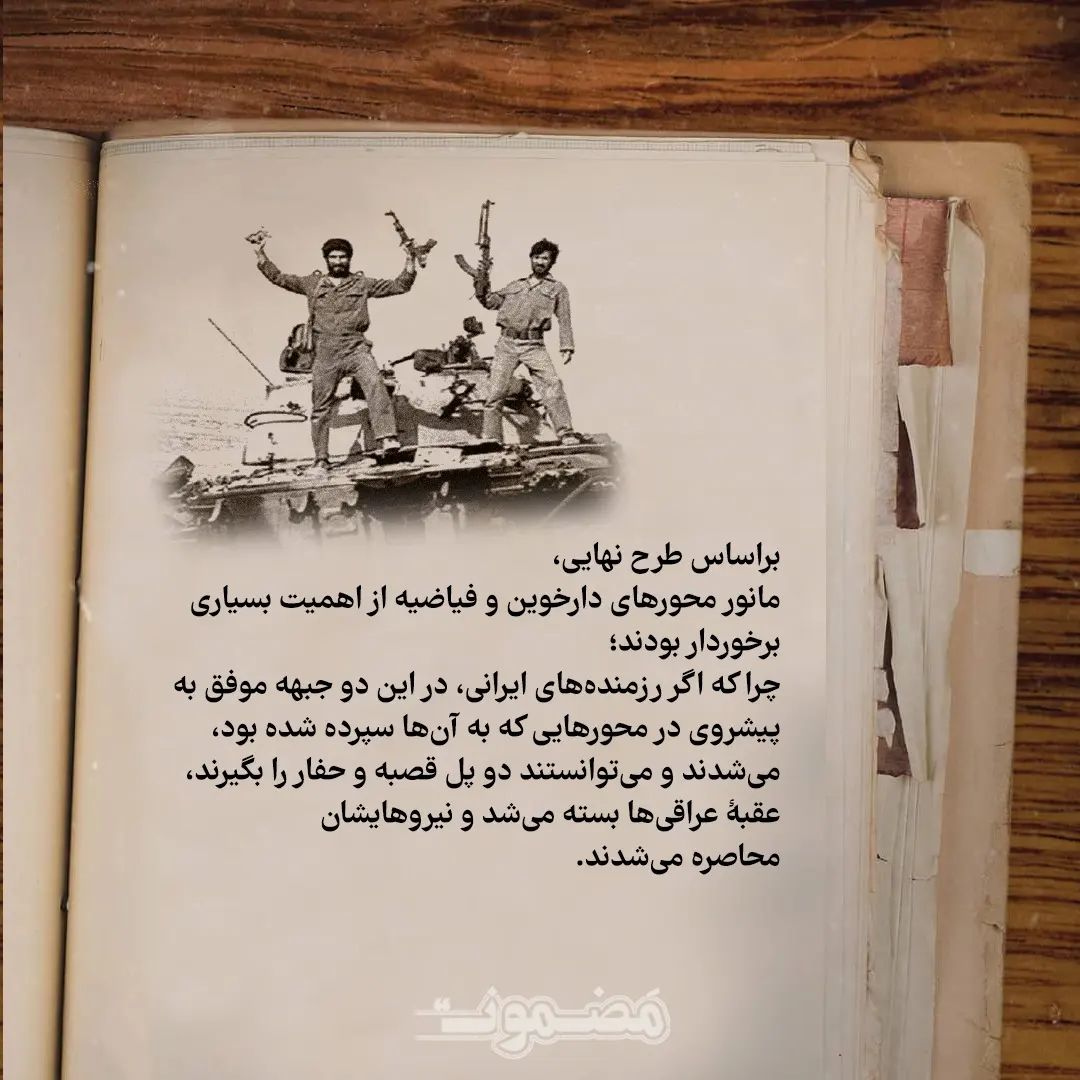 براساس طرح نهایی،
مانور محورهای دارخوین و فیاضیه از اهمیت بسیاری
برخوردار بودند؛
چرا که اگر رزمنده‌های ایرانی، در این دو جبهه موفق به
پیشروی در محورهایی که به آن‌ها سپرده شده بود،
می‌شدند و می‌توانستند دو پل قصبه و حفار را بگیرند،
عقبهٔ عراقی‌ها بسته می‌شد و نیروهایشان
محاصره می‌شدند.